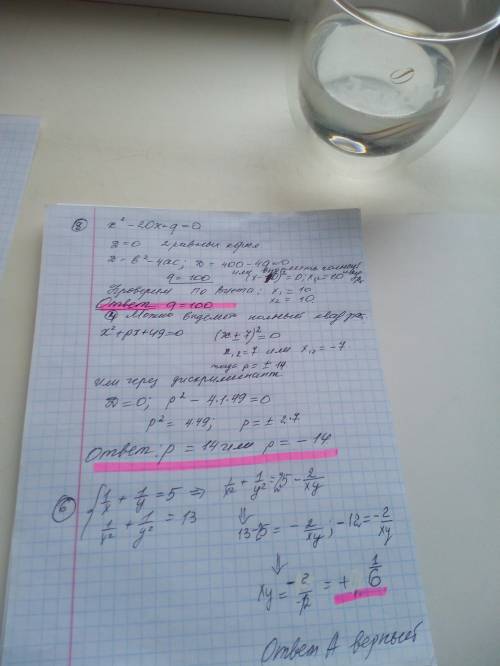 ② x² - 20x + q = 0
D = 0 2 равных корня
D = b² - 4ac; D = 400 - 4q = 0
q = 100 или
Проверим по Виета: x₁ = 10
x₂ = 10
Ответ q = 100
Можно выделить полный квадрат
x² + px + 49 = 0 (x ± 7)² = 0
x₁,₂ = 7 или x₁,₂ = -7
тогда p = ± 14
Или через дискриминант
D = 0; p² - 4·1·49 = 0
p² = 4·49; p = ± 2·7
Ответ: p = 14 или p = - 14
⑥ { 1/x + 1/y = 5 ⇒ 1/x² + 1/y² = 25 - 2/xy
1/x² + 1/y² = 13 ⇓
13 - 25 = - 2/xy; -12 = -2/xy
↓
xy = -2/-12 = + 1/6
Ответ А верный